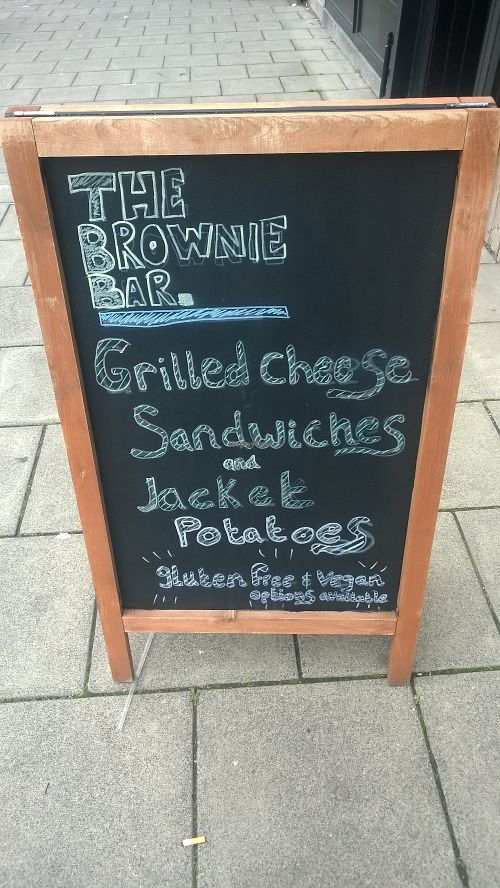 THE
BROWNIE
BAR.
Grilled cheese
Sandwiches
and
Jacket
Potatoes
gluten free & Vegan
options available